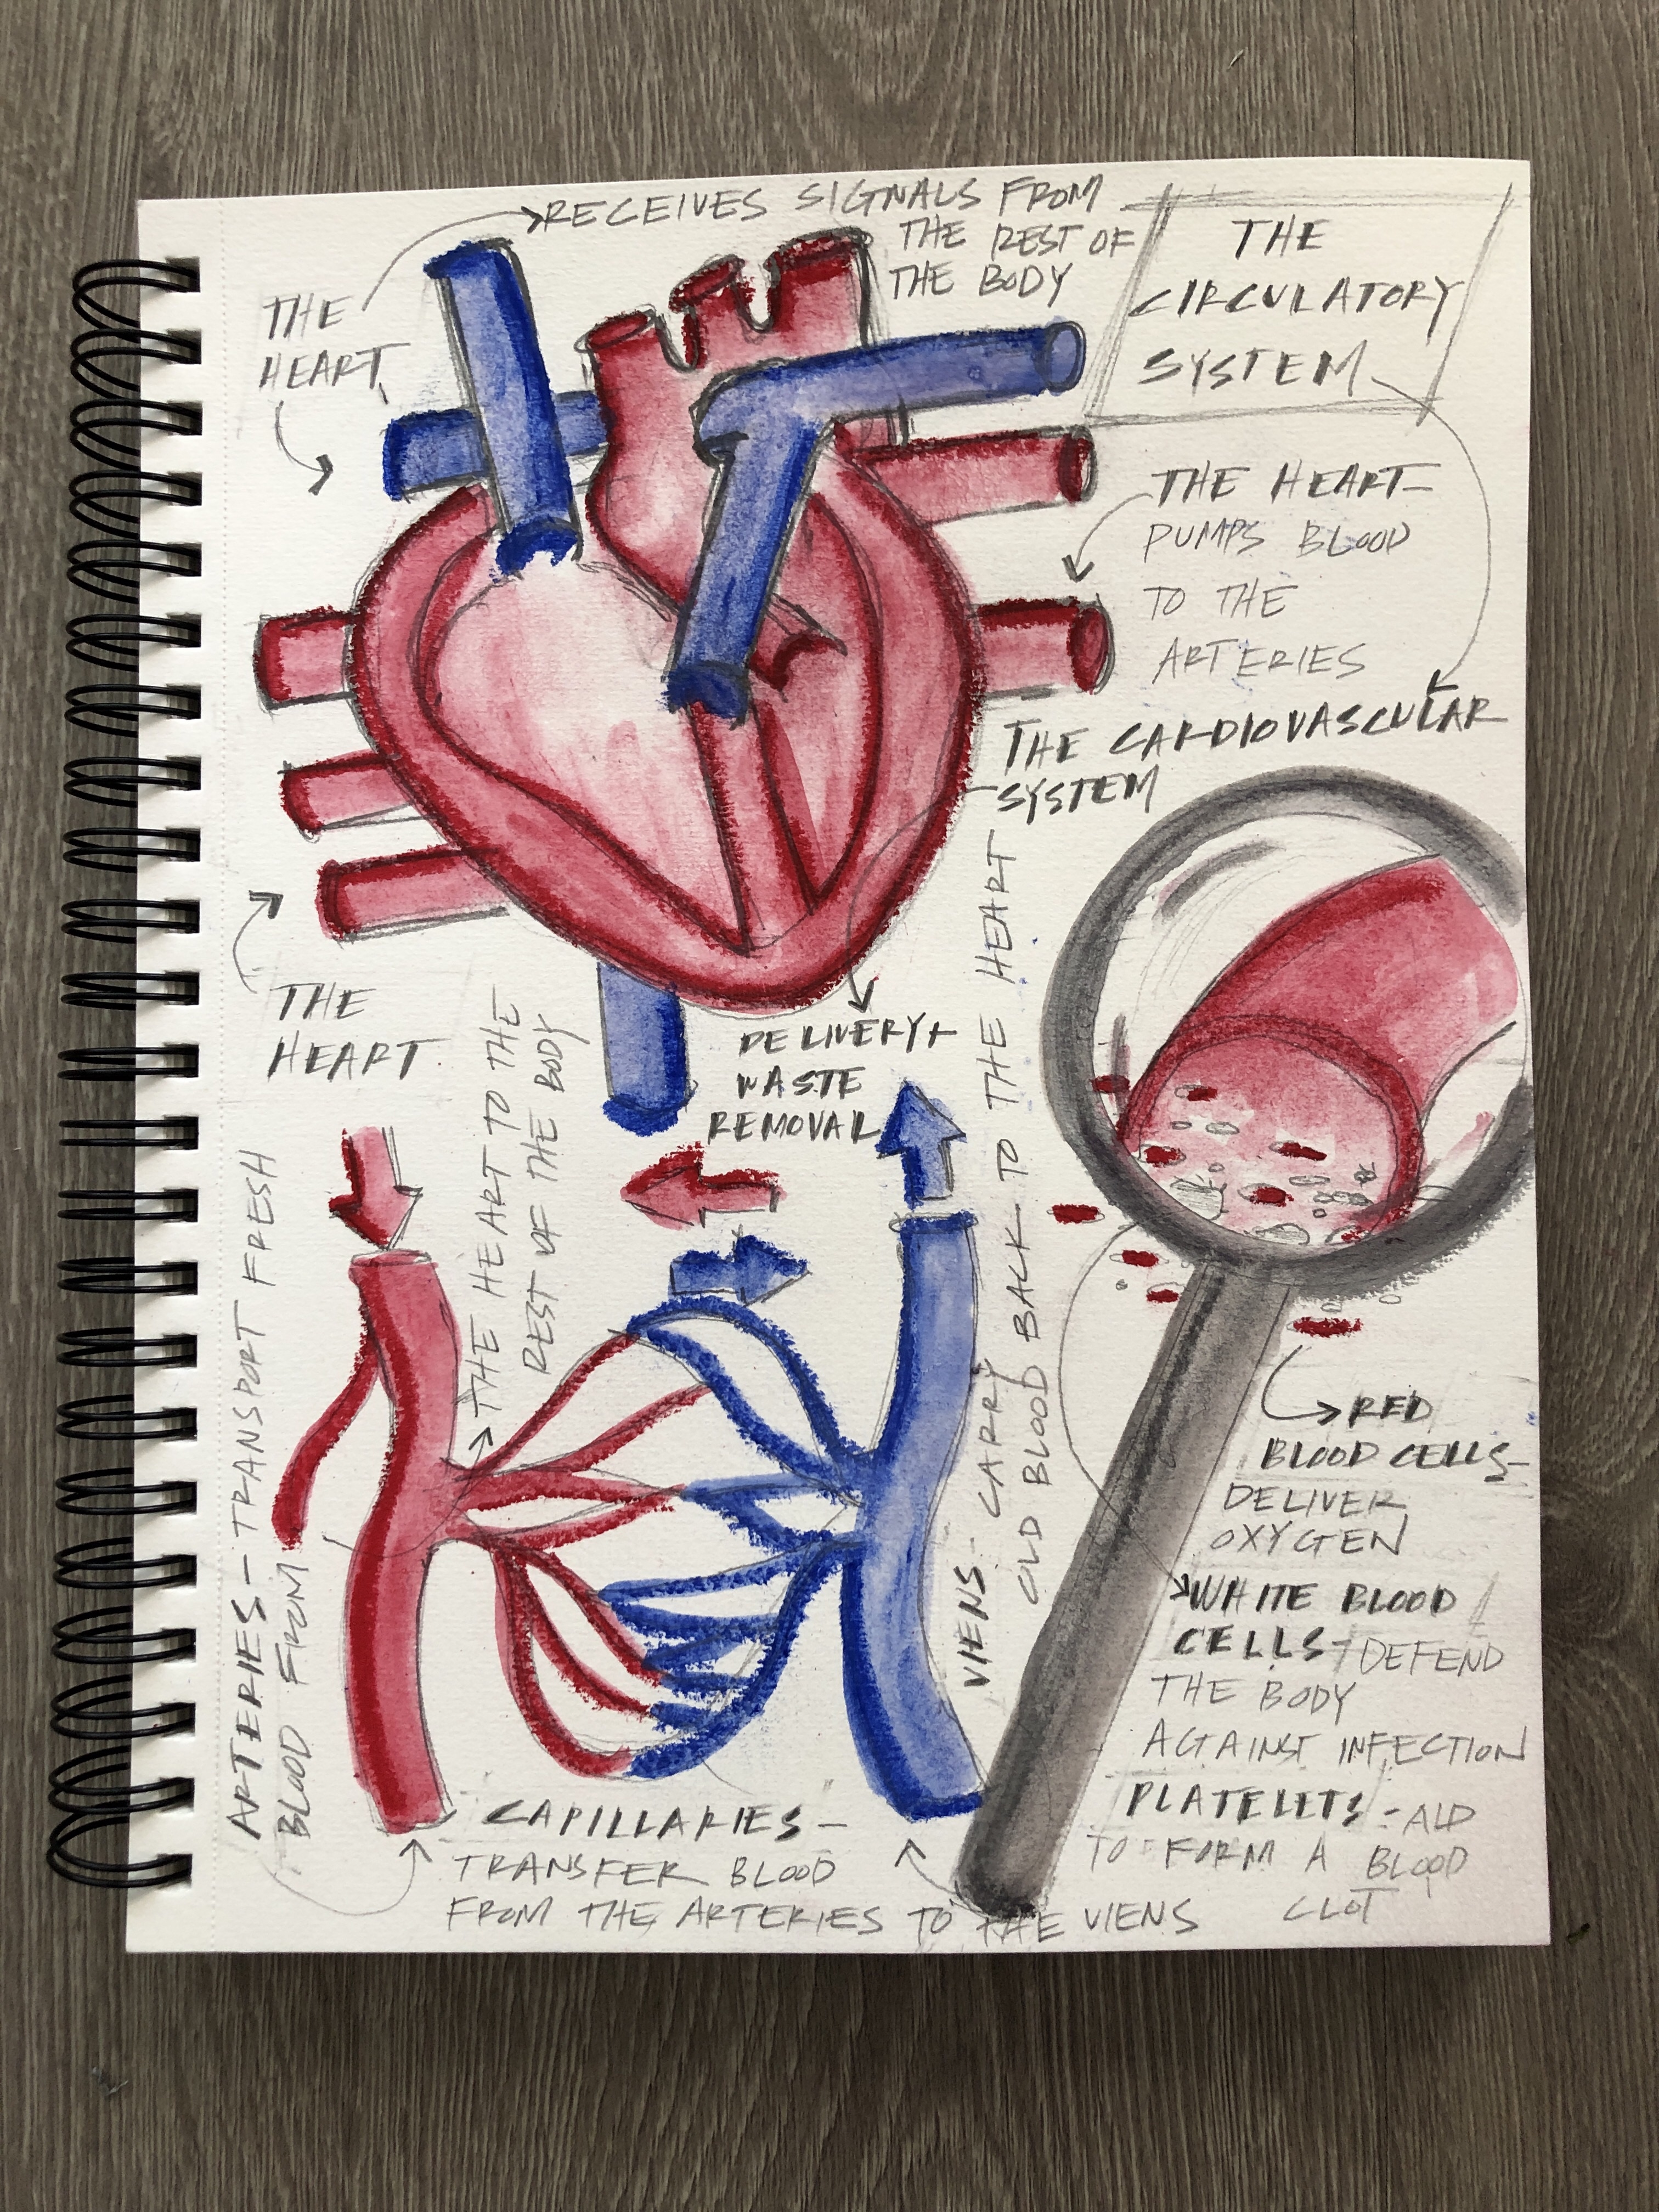 RECEIVES SIGNALS FROM
THE REST OF
THE BODY
THE
CIRCULATORY
SYSTEM
THE
HEART
THE HEART-
PUMPS BLOOD
TO THE
ARTERIES
THE CARDIOVASCULAR
SYSTEM
THE
HEART
DELIVERY+
WASTE
REMOVAL
ARTERIES- TRANSPORT FRESH
BLOOD FROM
THE HEART TO THE
REST OF THE BODY
VIENS- CARRY
OLD BLOOD BACK TO THE HEART
RED
BLOOD CELLS-
DELIVER
OXYGEN
WHITE BLOOD
CELLS- DEFEND
THE BODY
AGAINST INFECTION
PLATELETS- AID
TO FORM A BLOOD
CLOT
CAPILLARIES-
TRANSFER BLOOD
FROM THE ARTERIES TO THE VIENS